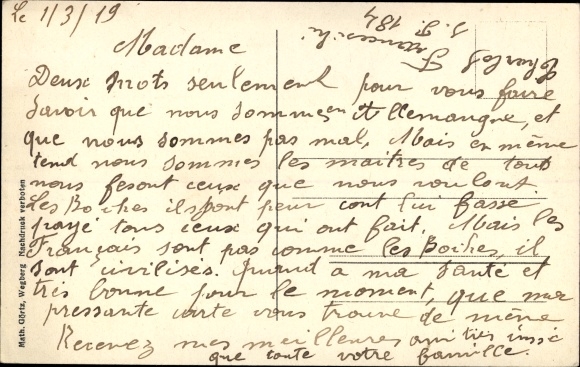 Le 1/3/19
Madame
Deux mots seulement pour vous faire
savoir que nous sommes en Allemangne, et
que nous sommes pas mal, Mais en même
tend nous sommes les maitres de tout
nous fesont ceux que nous voulont.
Les Boches ils ont peur cont lui fasse
payé tous ceux qui ont fait. Mais les
Français sont pas comme les Boches, il
sont civilisés. Quand a ma santé et
très bonne pour le moment, que ma
pressante carte vous trouve de même
Recevez mes meilleures amitiés
que toute votre famille.
184
Math. Görtz, Wegberg Nachdruk verboten